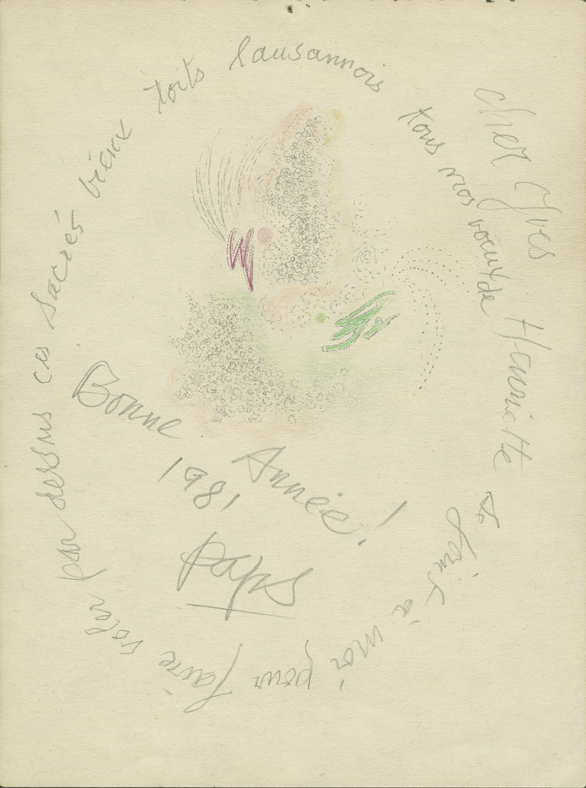 cher Yves
tous nos voeux de Henriette
se joint à moi pour faire voler par dessus ces sacrés vieux toits lausannois
Bonne
Année!
1981
paps